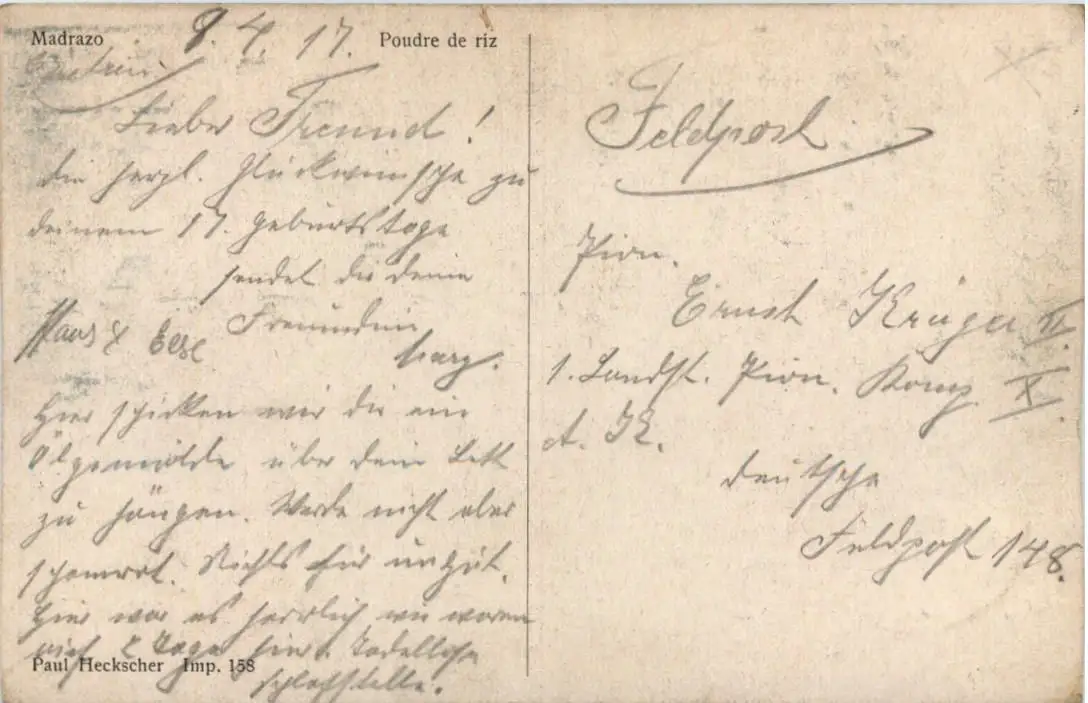 Madrazo
Poudre de riz
8.4.17.
Lieber Freund!
Die herzl. Glückwünsche zu
deinem 17. Geburtstage
sendet dir deine
Freundin
Hans & Else
Marg.
Hier schicken wir dir ein
Ölgemälde über dein Bett
zu hängen. Werde nicht aber
schamrot. Nichts für ungut.
Hier war es herrlich, wir waren
2 Tage hier. Tadellose
Schlafstelle.
Paul Heckscher Imp. 158
Feldpost
Pion.
Ernst Krüger II.
1. Landst. Pion. Komp. X.
A. K.
Deutsche
Feldpost 148.